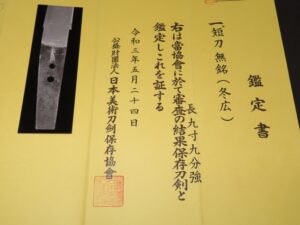 鑑定書
一、短刀 無銘(冬広)
長九寸九分強
右は當協會に於て審査の結果保存刀剣と
鑑定しこれを証する
令和三年五月二十四日
公益財団法人日本美術刀剣保存協會